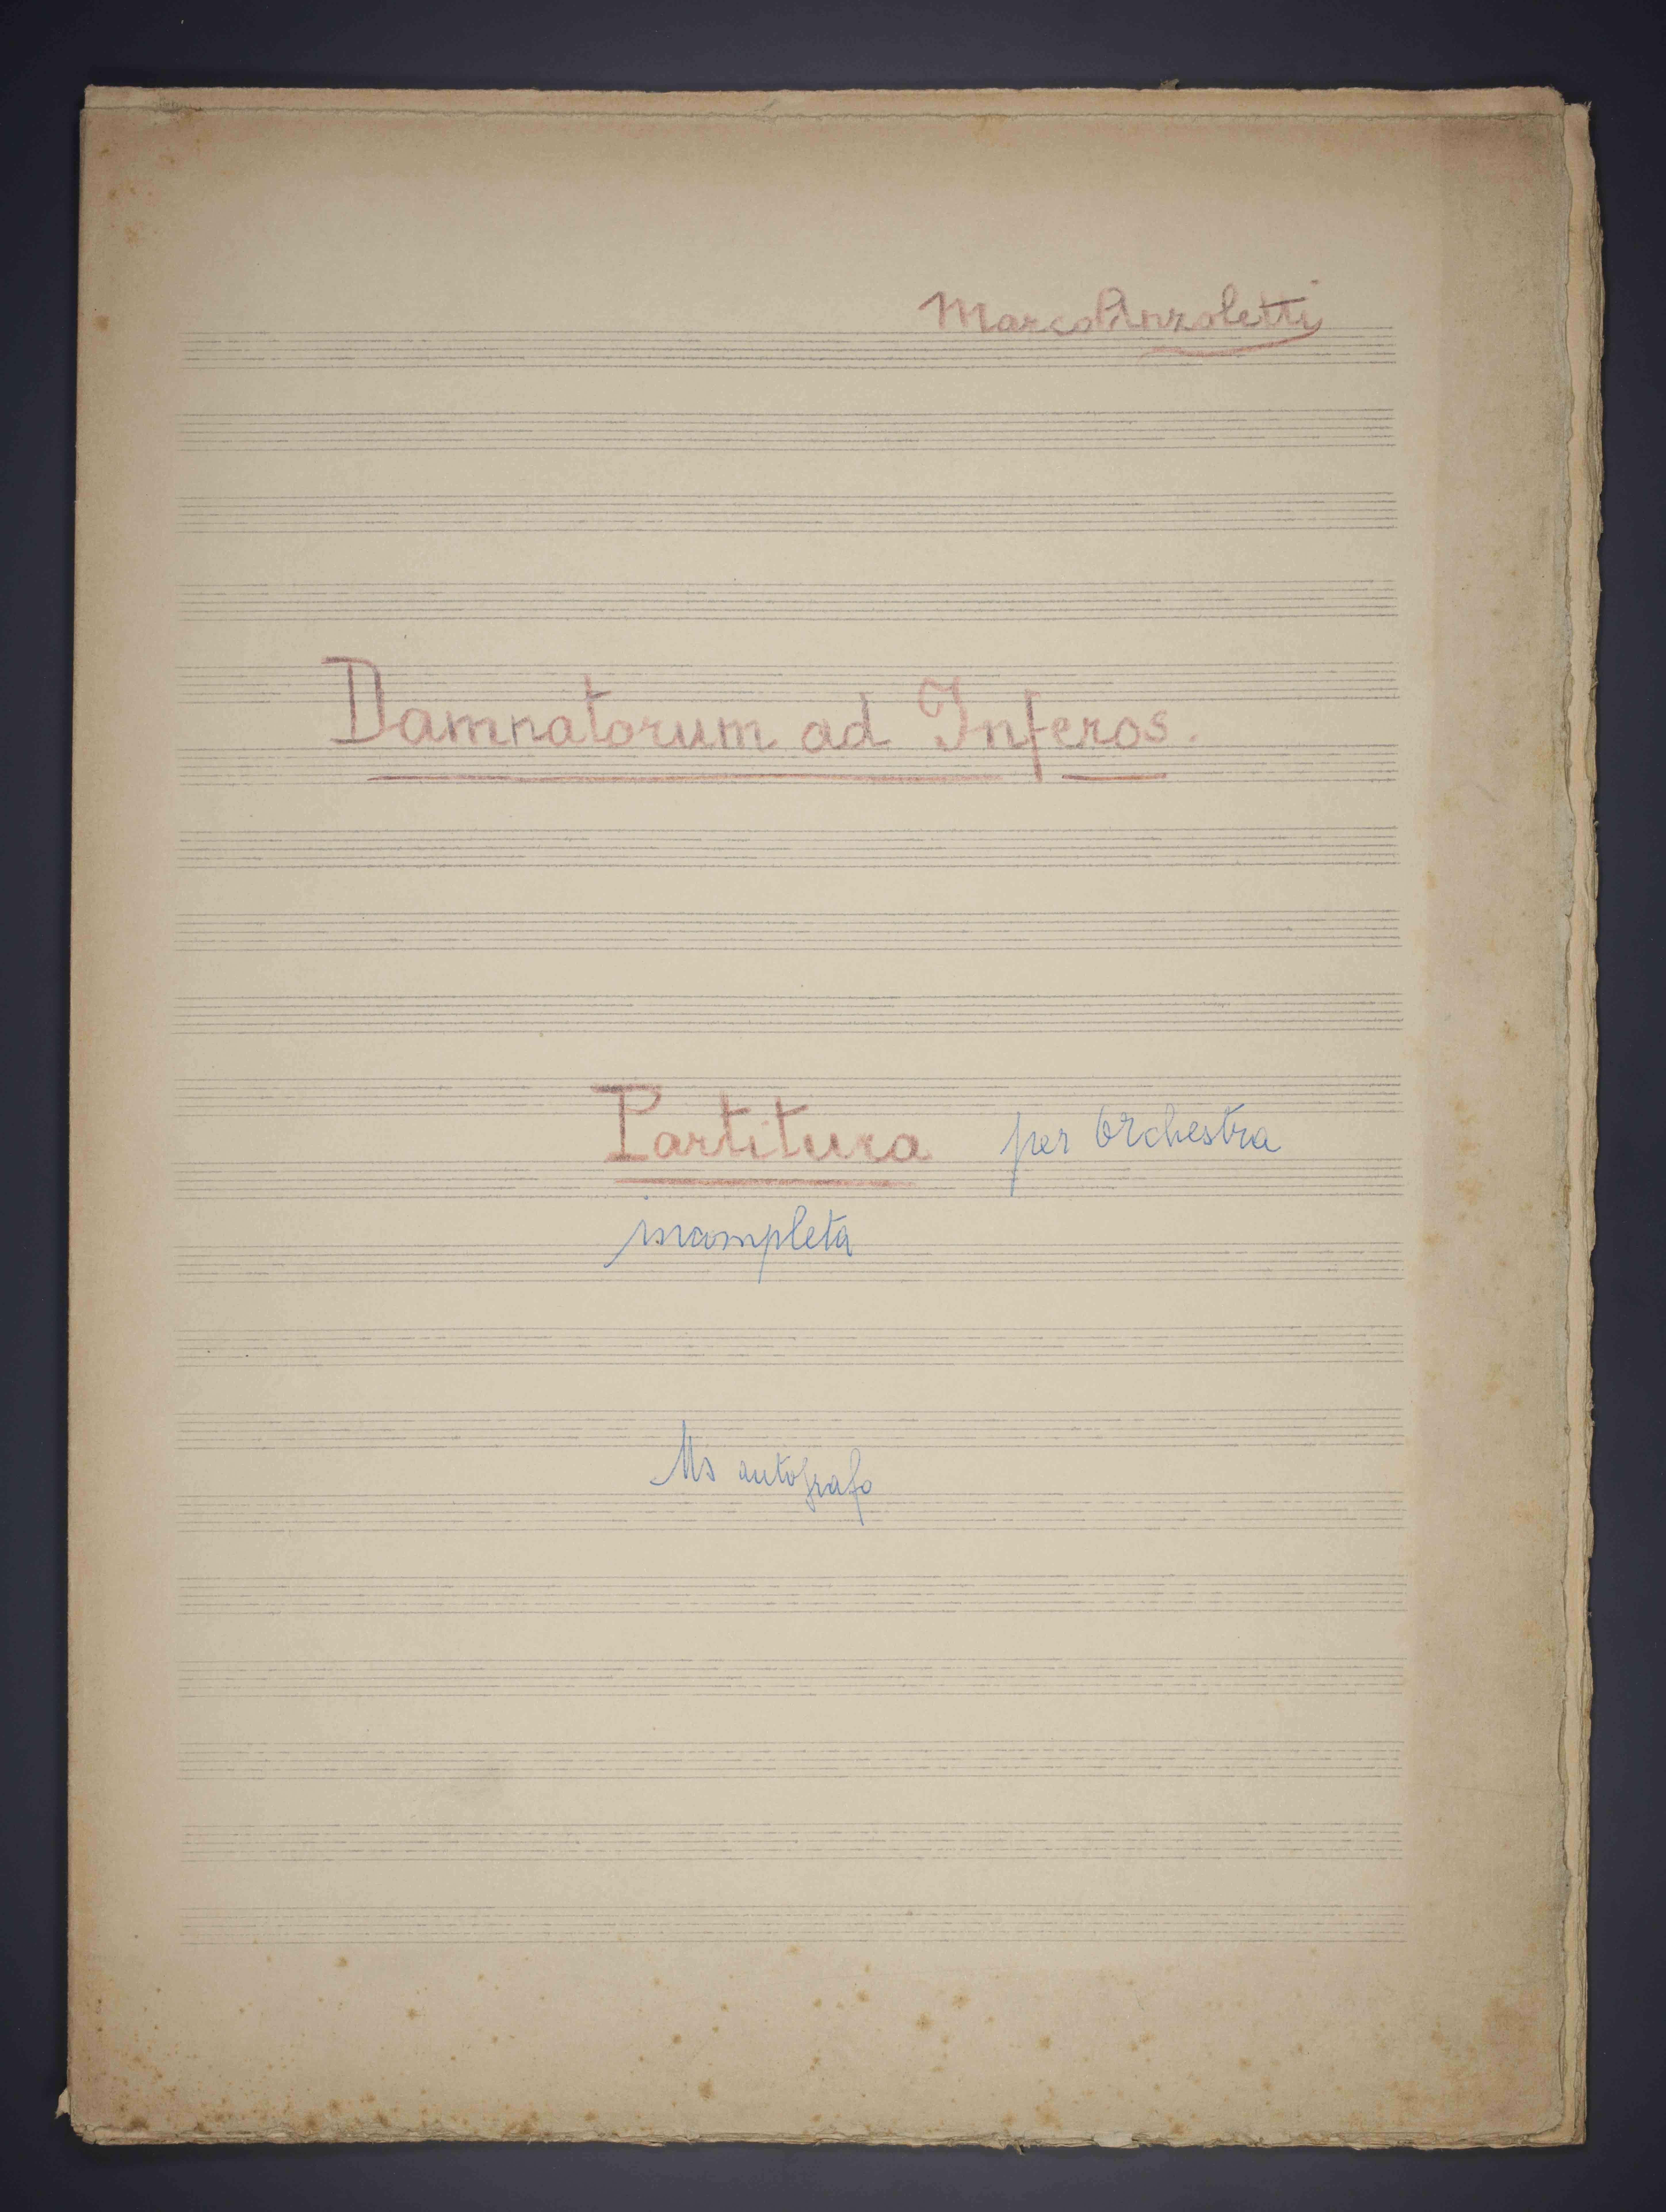 Marco Anzoletti
Damnatorum ad Inferos.
Partitura per Orchestra
incompleta
Ms autografo